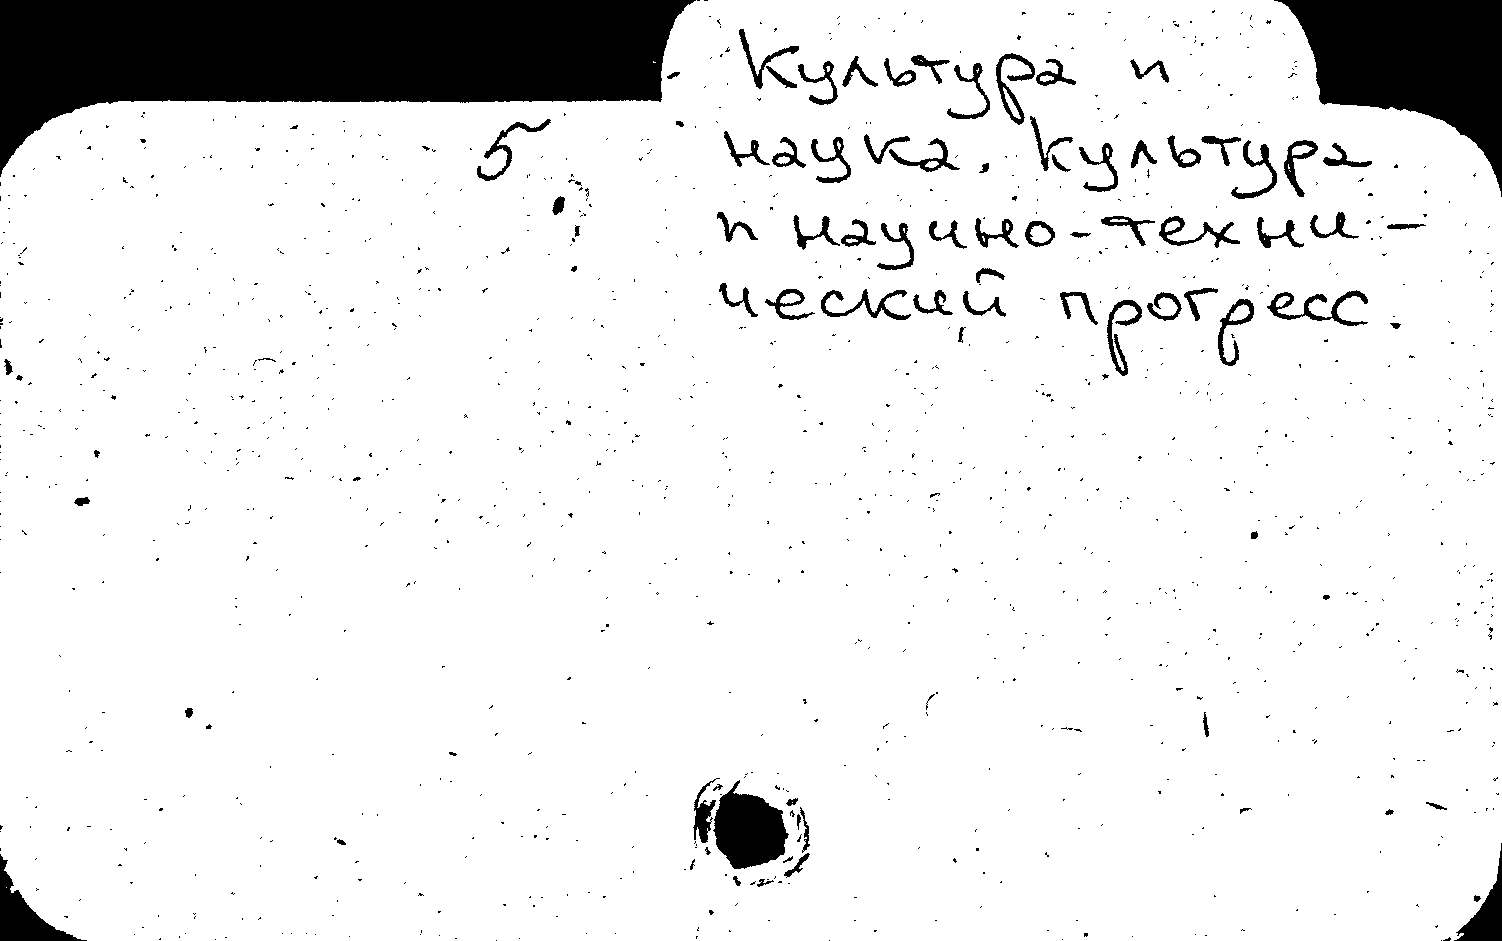 Культура и
5 наука. Культура
и научно-техни-
ческий прогресс.